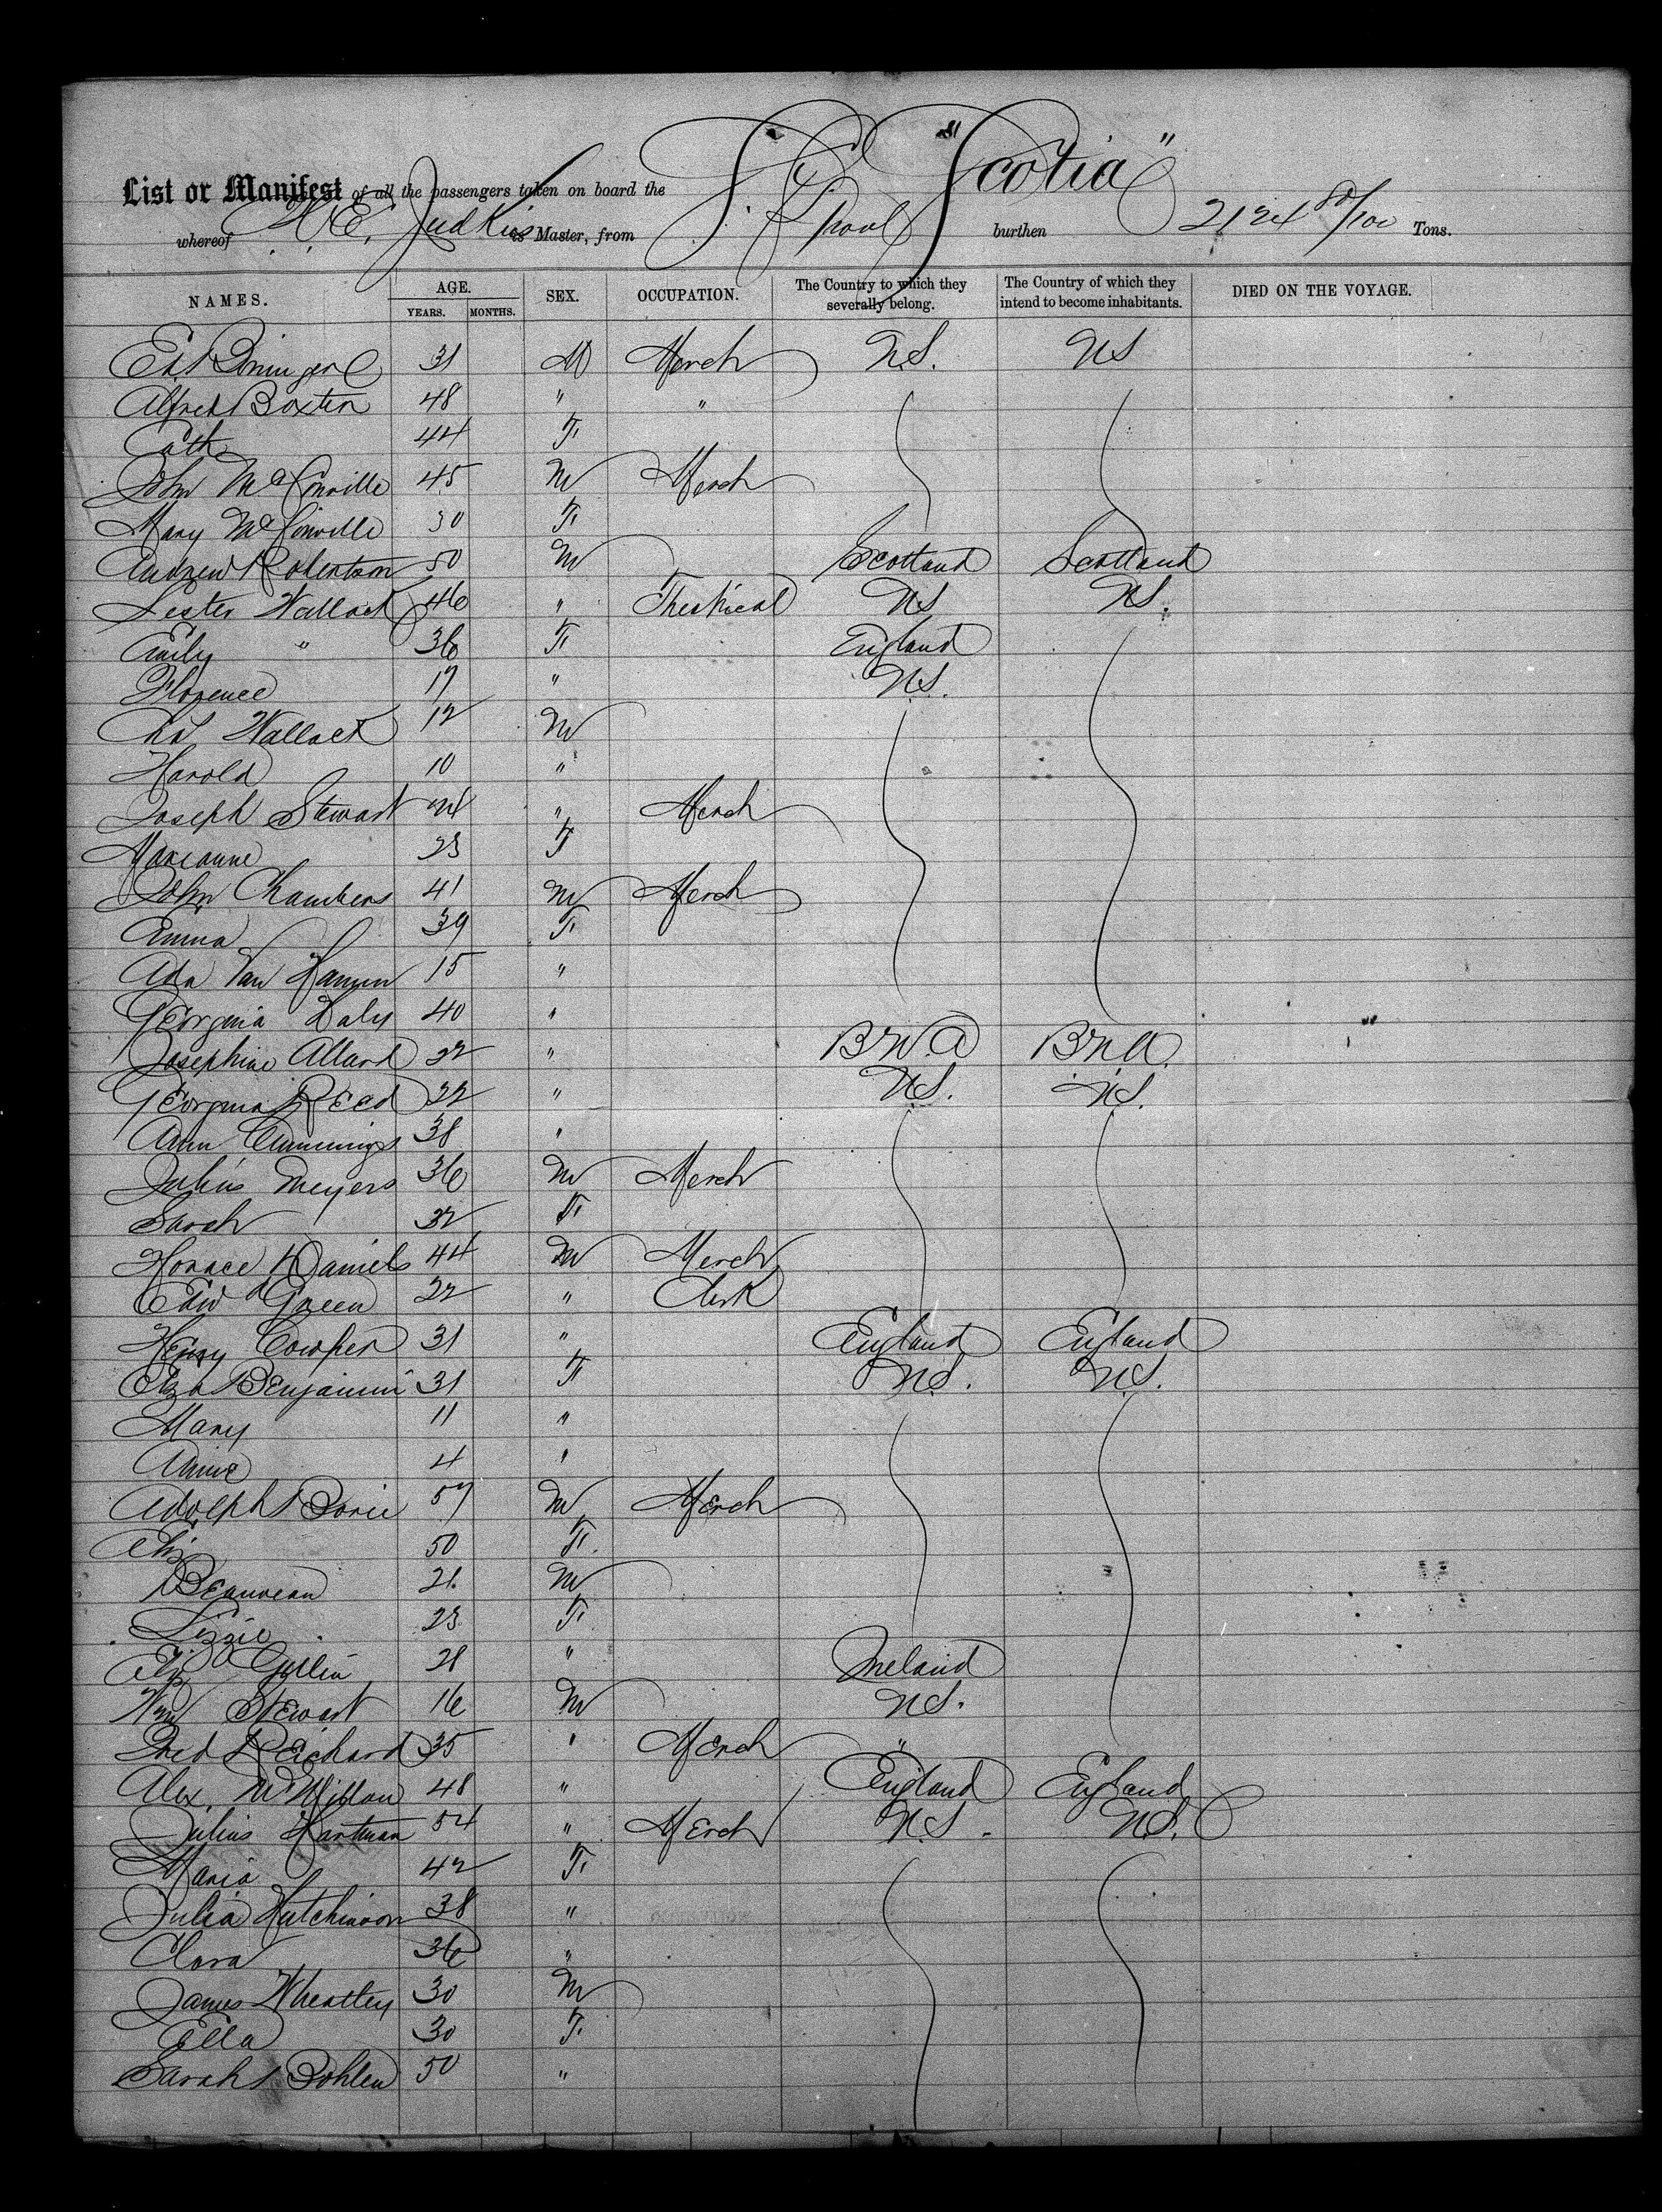 S.S. "Scotia"
List or Manifest of all the passengers taken on board the
whereof Judkins is Master, from L'pool burthen 2124 80/100 Tons.
NAMES. AGE. SEX. OCCUPATION. The Country to which they severally belong. The Country of which they intend to become inhabitants. DIED ON THE VOYAGE.
YEARS. MONTHS.
31 M Merch U.S. US
Alfred Boxten 48 " "
Cath 44 F
John McConville 45 M Merch
Mary McConville 30 F
Andrew Robertson 50 M Scotland Scotland
Lester Wallack 46 " Theatrical US US.
Emily " 36 F England
Florence 17 " U.S.
Chs Wallack 12 M
Harold 10 "
Joseph Stewart 24 " Merch
Marianne 23 F
John Chambers 41 M Merch
Emma 39 F
Ada Van 15 "
Georgina Daly 40 "
Josephine Allard 22 " B.N.A B.N.A.
Georgina Reed 22 " U.S. U.S.
Ann Cummings 38 "
Julius Meyers 36 M Merch
Sarah 32 F
Horace Daniels 44 M Merch
Edwd Green 22 " Clerk
Henry Cowper 31 " England England
Eliza Benjamin 31 F U.S. U.S.
Mary 11 "
Annie 4 "
Adolph Borie 57 M Merch
Eliz 50 F.
Beauveau 21 M
Lizzie 23 F
Eliz 28 " Ireland
Wm Stewart 16 M U.S.
Fred Reichard 35 " Merch "
Alex. McMillan 48 " England England
Julius Hartman 54 " Merch U.S. U.S.
Maria 42 F
Julia Hutchinson 38 "
Clara 36 "
James Wheatley 30 M
Ella 30 F
Sarah Bohlen 50 "